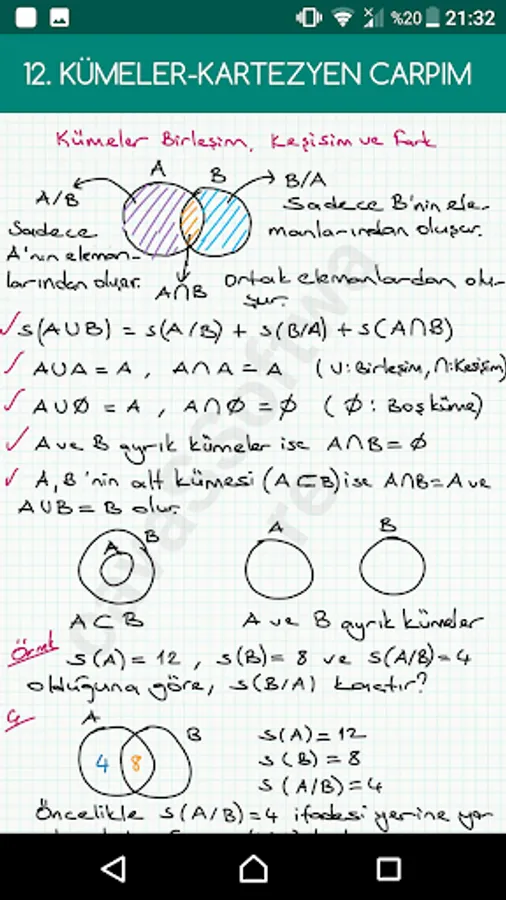 %20 21:32
12. KÜMELER-KARTEZYEN CARPIM
Kümeler Birleşim, Kesişim ve Fark
A B
A/B
B/A
Sadece A'nın eleman-
larından oluşur.
Sadece B'nin ele-
manlarından oluşur.
A∩B
ortak elemanlardan olu-
şur.
✓ s(A∪B) = s(A/B) + s(B/A) + s(A∩B)
✓ A∪A = A , A∩A = A (∪:Birleşim, ∩:Kesişim)
✓ A∪∅ = A , A∩∅ = ∅ (∅ : Boş küme)
✓ A ve B ayrık kümeler ise A∩B = ∅
✓ A, B'nin alt kümesi (A⊂B) ise A∩B = A ve
A∪B = B olur.
A B
A
B
A⊂B
A ve B ayrık kümeler
Örnek s(A) = 12 , s(B) = 8 ve s(A/B) = 4
olduğuna göre, s(B/A) kaçtır?
Ç
A
B
4 8
s(A) = 12
s(B) = 8
s(A/B) = 4
Öncelikle s(A/B) = 4 ifadesi yerine ya-